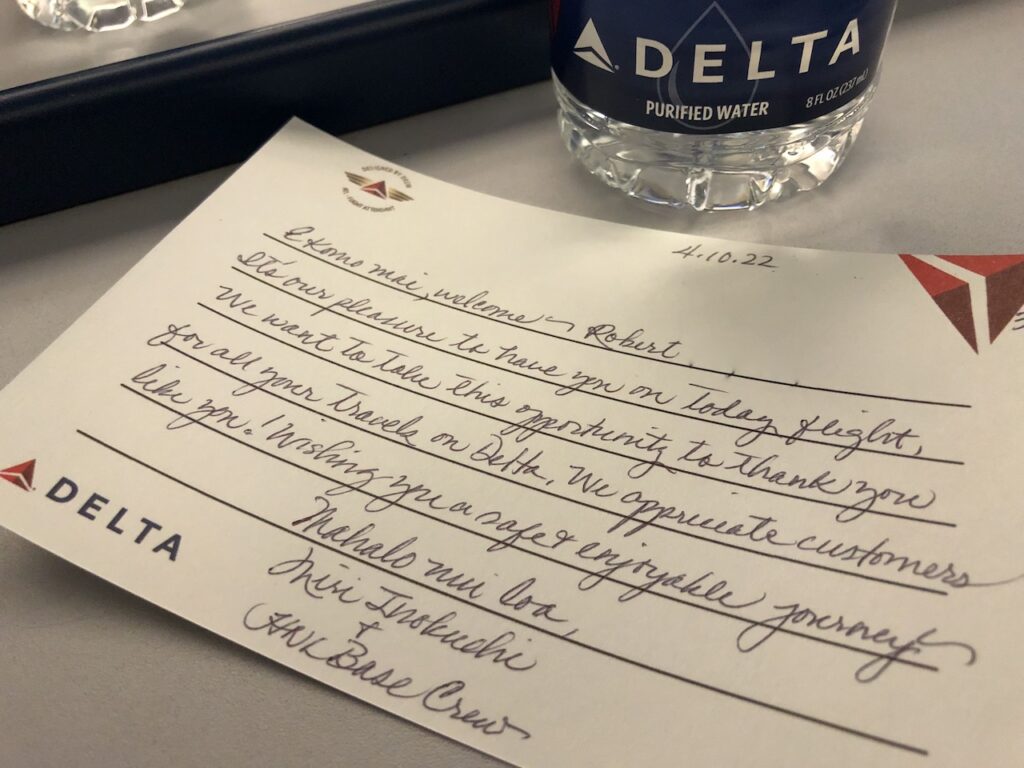 DELTA
PURIFIED WATER
8 FL OZ (237 mL)
4.10.22
E Komo mai, welcome ~ Robert
It's our pleasure to have you on today flight,
We want to take this opportunity to thank you
for all your travels on Delta. We appriciate customers
like you! Wishing you a safe & enjoyable journey!
Mahalo nui loa,
Miri Inokuchi
&
HNL Base Crew
DELTA